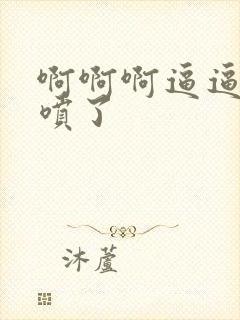 啊啊啊逼逼
噴了
沐蘆